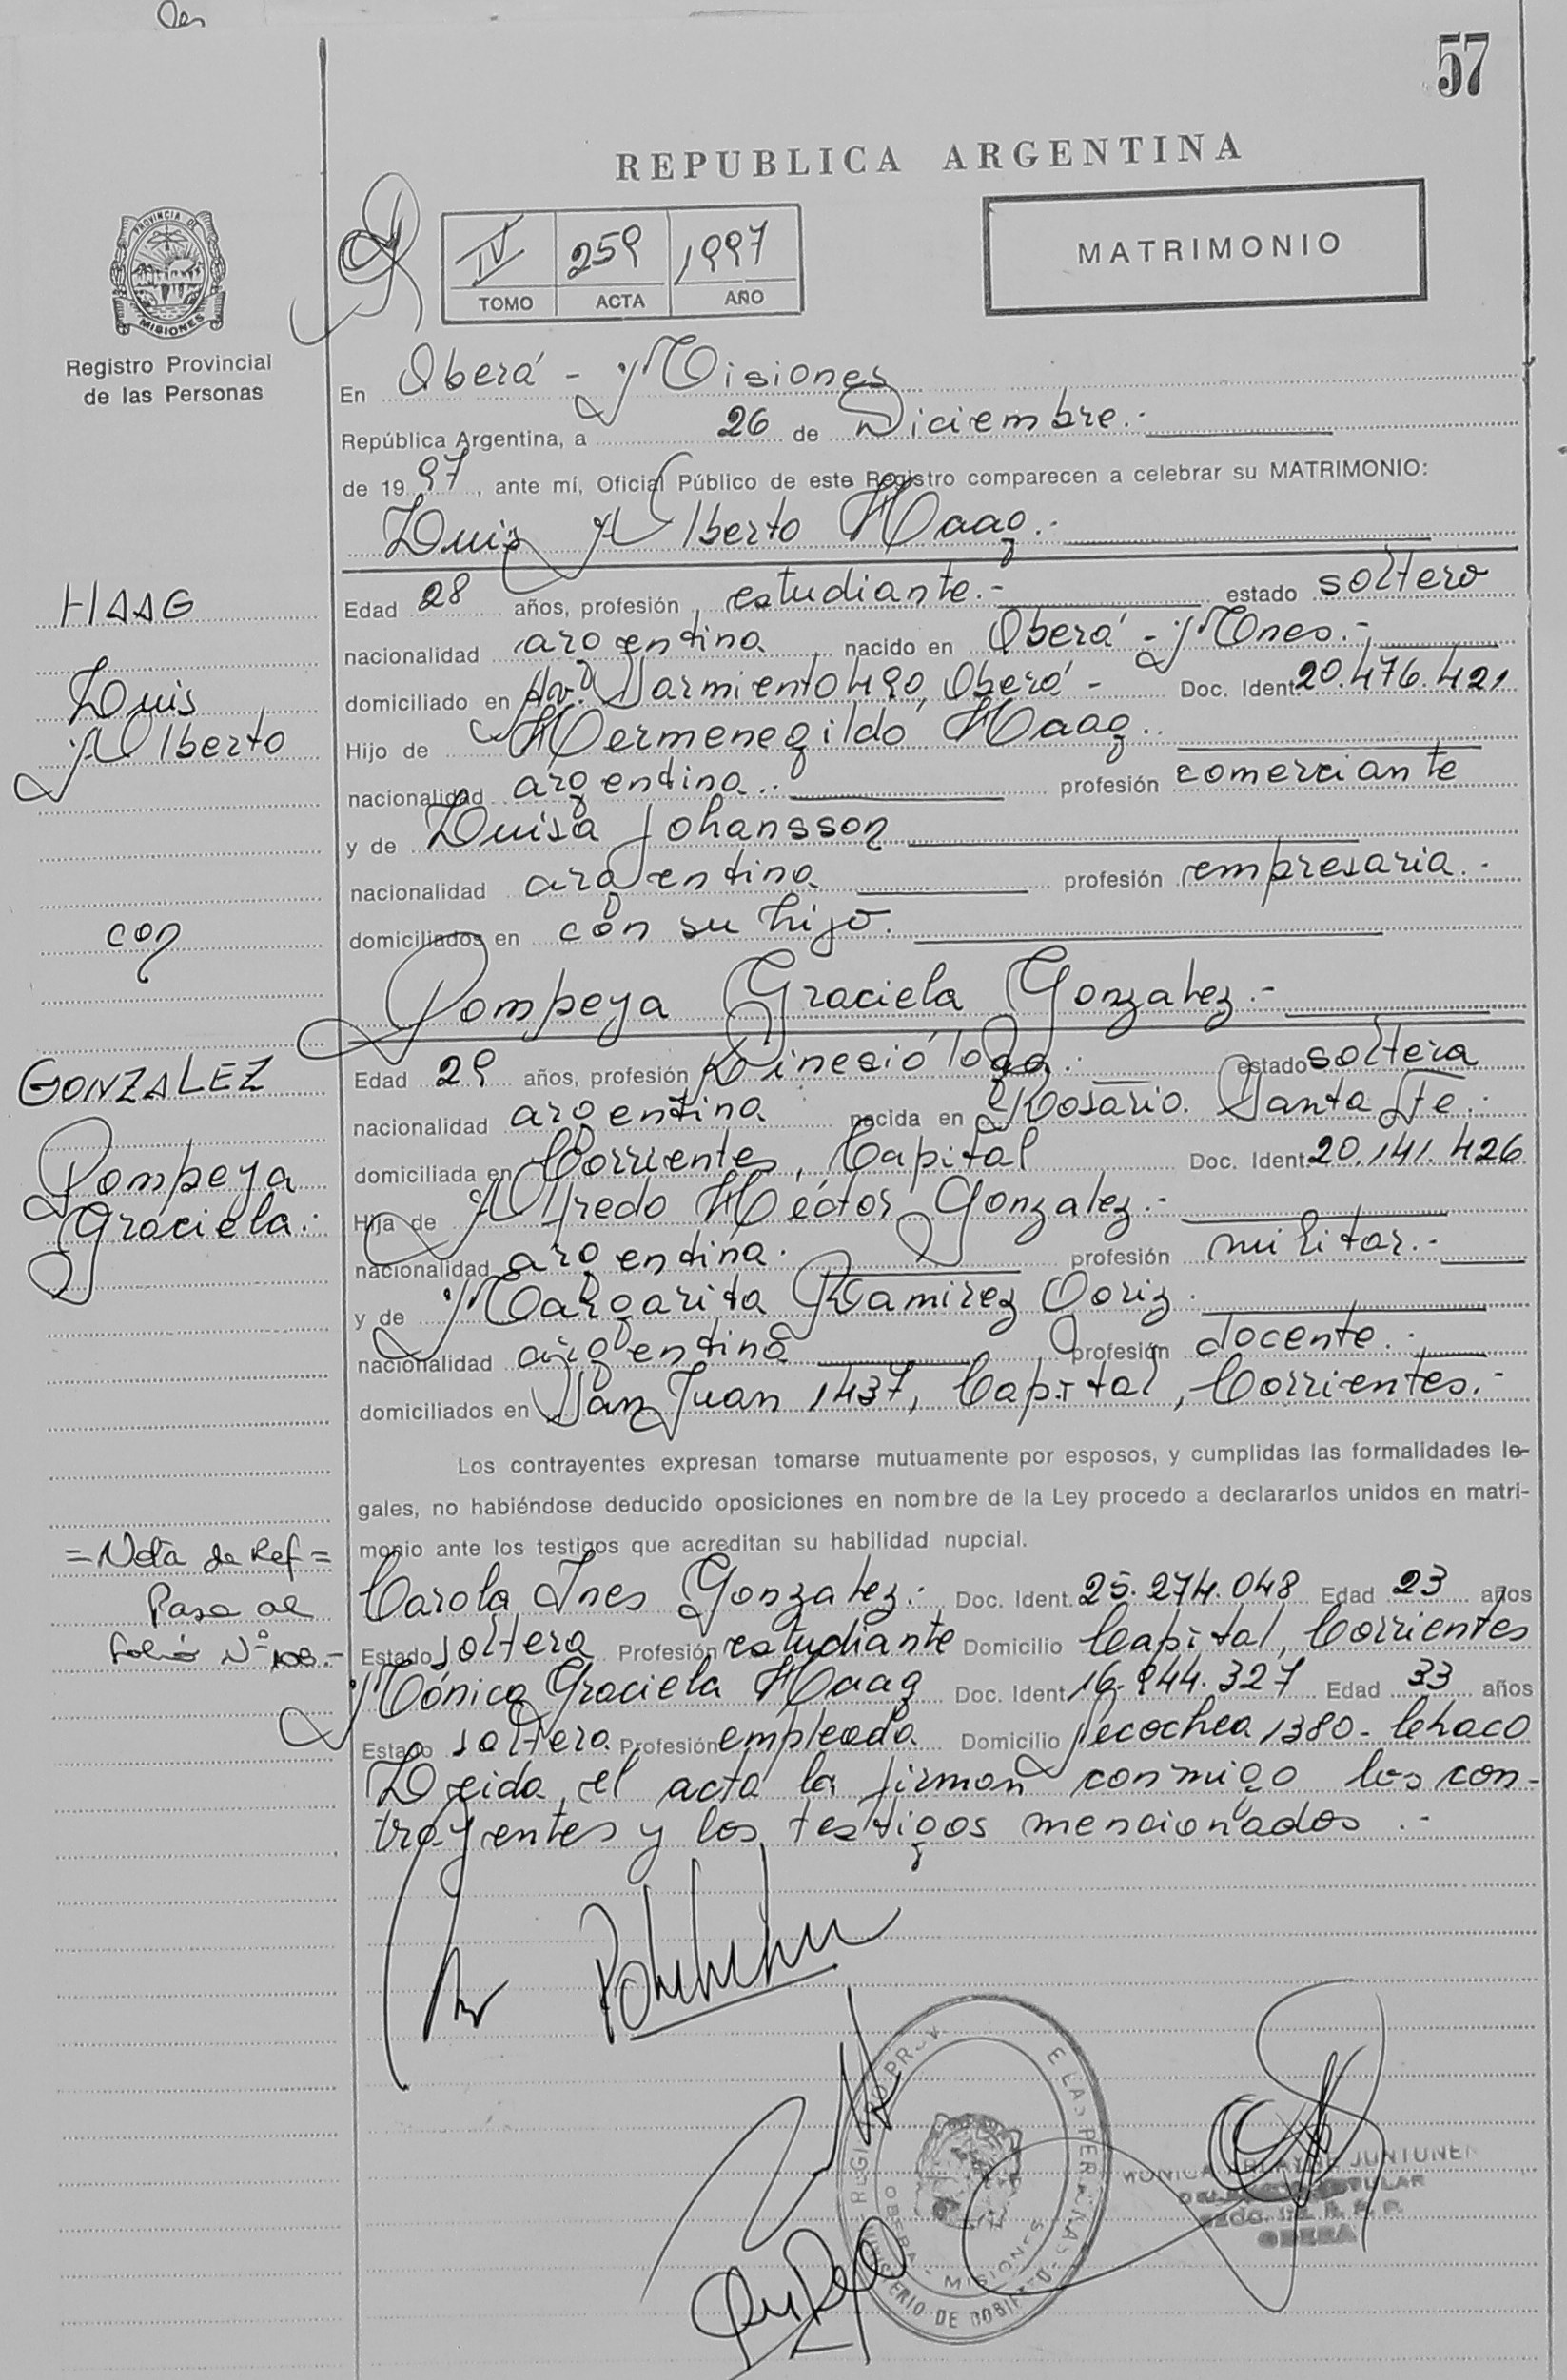 57
REPUBLICA ARGENTINA
PROVINCIA DE
MISIONES
Registro Provincial
de las Personas
IV 259 1997
TOMO ACTA AÑO
MATRIMONIO
En Oberá - Misiones
República Argentina, a 26 de Diciembre.-
de 1997, ante mí, Oficial Público de este Registro comparecen a celebrar su MATRIMONIO:
Luis Alberto Haag.-
Edad 28 años, profesión estudiante.- estado soltero
nacionalidad argentina nacido en Oberá - Mnes.-
domiciliado en Av. Sarmiento 490, Oberá - Doc. Ident. 20.476.421
Hijo de Hermenegildo Haag..
nacionalidad argentina.. profesión comerciante
y de Luisa Johansson
nacionalidad argentina profesión empresaria.-
domiciliados en con su hijo.
HAAG
Luis
Alberto
con
GONZALEZ
Pompeya
Graciela.-
Pompeya Graciela Gonzalez.-
Edad 29 años, profesión Kinesióloga. estado soltera
nacionalidad argentina nacida en Rosario. Santa Fe.-
domiciliada en Corrientes, Capital Doc. Ident. 20.141.426
Hija de Alfredo Héctor Gonzalez.-
nacionalidad argentina. profesión militar.-
y de Margarita Ramirez
nacionalidad argentina profesión docente.-
domiciliados en San Juan 1437, Capital, Corrientes.-
Los contrayentes expresan tomarse mutuamente por esposos, y cumplidas las formalidades le-
gales, no habiéndose deducido oposiciones en nombre de la Ley procedo a declararlos unidos en matri-
monio ante los testigos que acreditan su habilidad nupcial.
= Nota de Ref =
Pasa al
folio Nº 108.-
Carola Ines Gonzalez.- Doc. Ident. 25.274.048 Edad 23 años
Estado soltera Profesión estudiante Domicilio Capital, Corrientes
Mónica Graciela Haag Doc. Ident. 16.944.327 Edad 33 años
Estado soltera Profesión empleada Domicilio Necochea 1380 - Chaco
Leida el acta la firman conmigo los con-
trayentes y los testigos mencionados.-
MINISTERIO DE GOBIERNO
OBERA - MISIONES
MONICA JUNTUNEN
OBERA